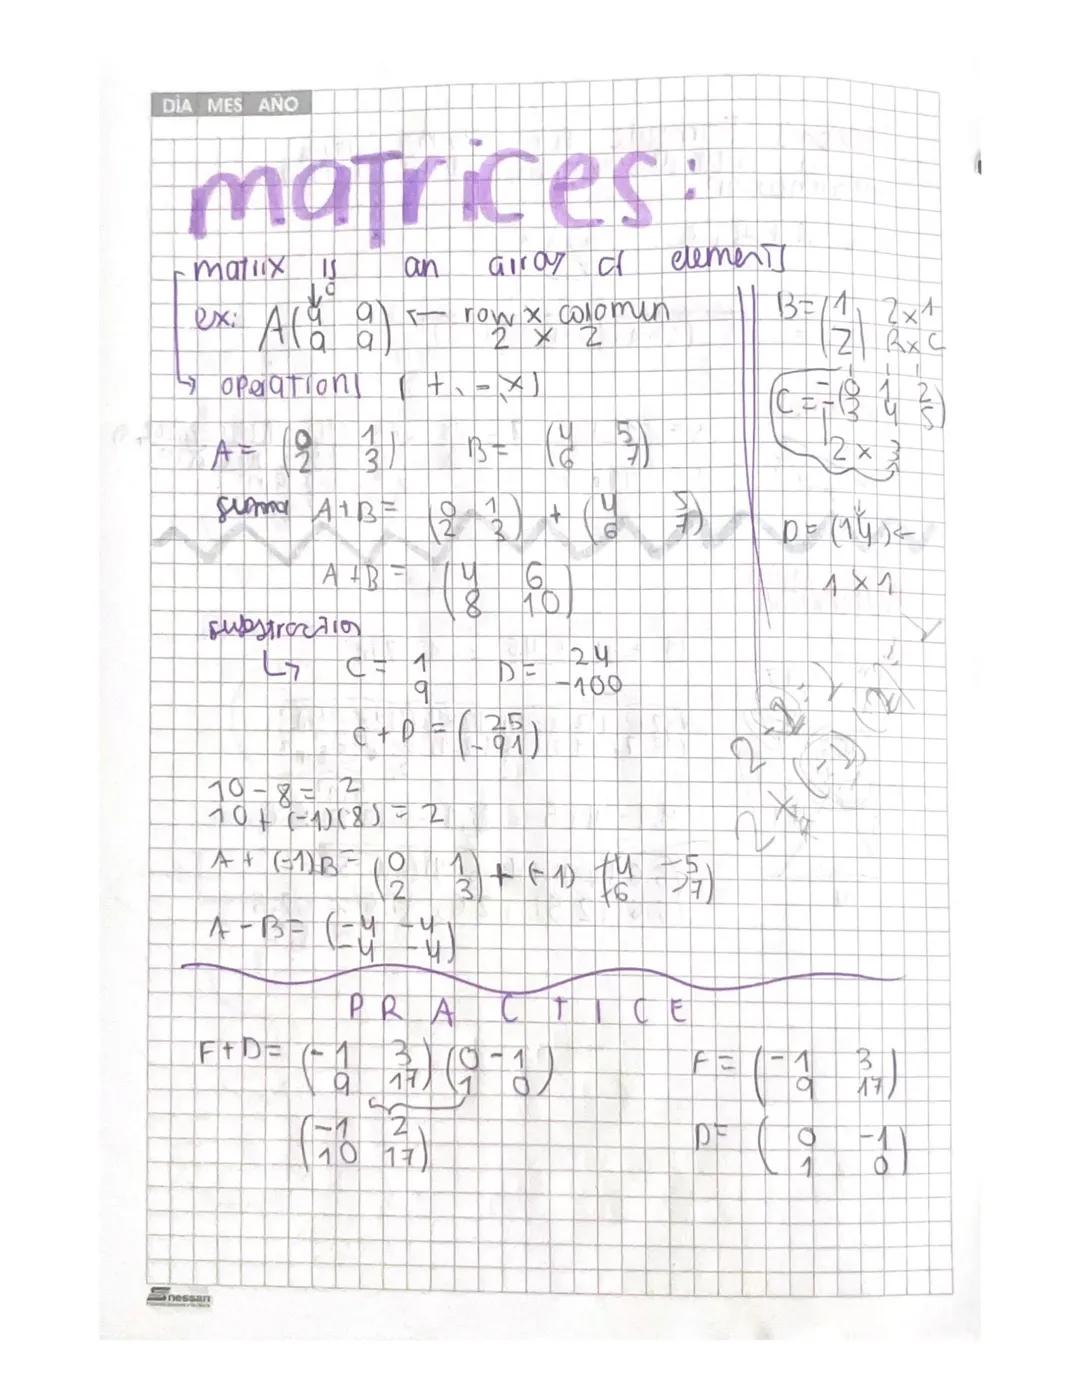 DÌA MES AÑO
matrices:
matrix is an array of elements
ex: A(9 9 ← row x colomun
9 9) 2 x 2
operations (+, -, x)
A = (0 1 B = (4 5
2 3) 6 7)
suma A+B = (0 1 + (4 5
2 3) 6 7)
A+B = (4 6
8 10)
substraction
↳ C = 1 D = 24
9 -100
C+D = (25
-91)
10 - 8 = 2
10 + (-1)(8) = 2
A + (-1)B = (0 1 + (-1) (+4 -5
2 3) +6 -7)
A - B = (-4 -4
-4 -4)
B = (1 2x1
2) RxC
C = (0 1 2
3 4 5)
2 x 3
D = (14) ←
1 x 1
PRACTICE
F+D = (-1 3 (0 -1
9 17) 1 0)
(-1 2
10 17)
F = (-1 3
9 17)
D = (0 -1
1 0)
nessan